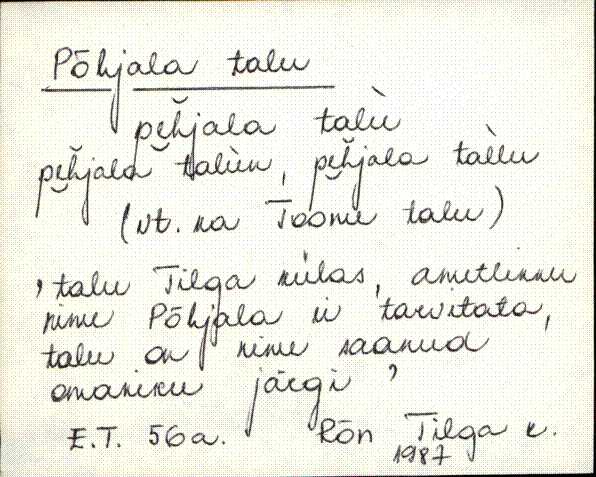 Põhjala talu
pĕhjala talù
pĕhjala talùn, pĕhjala tal̀lu
(vt. ka Toome talu)
, talu Tilga külas, ametlikku
nime Põhjala ei tarvitata,
talu on nime saanud
omaniku järgi ’
E.T. 56a. Rõn Tilga k.
1987